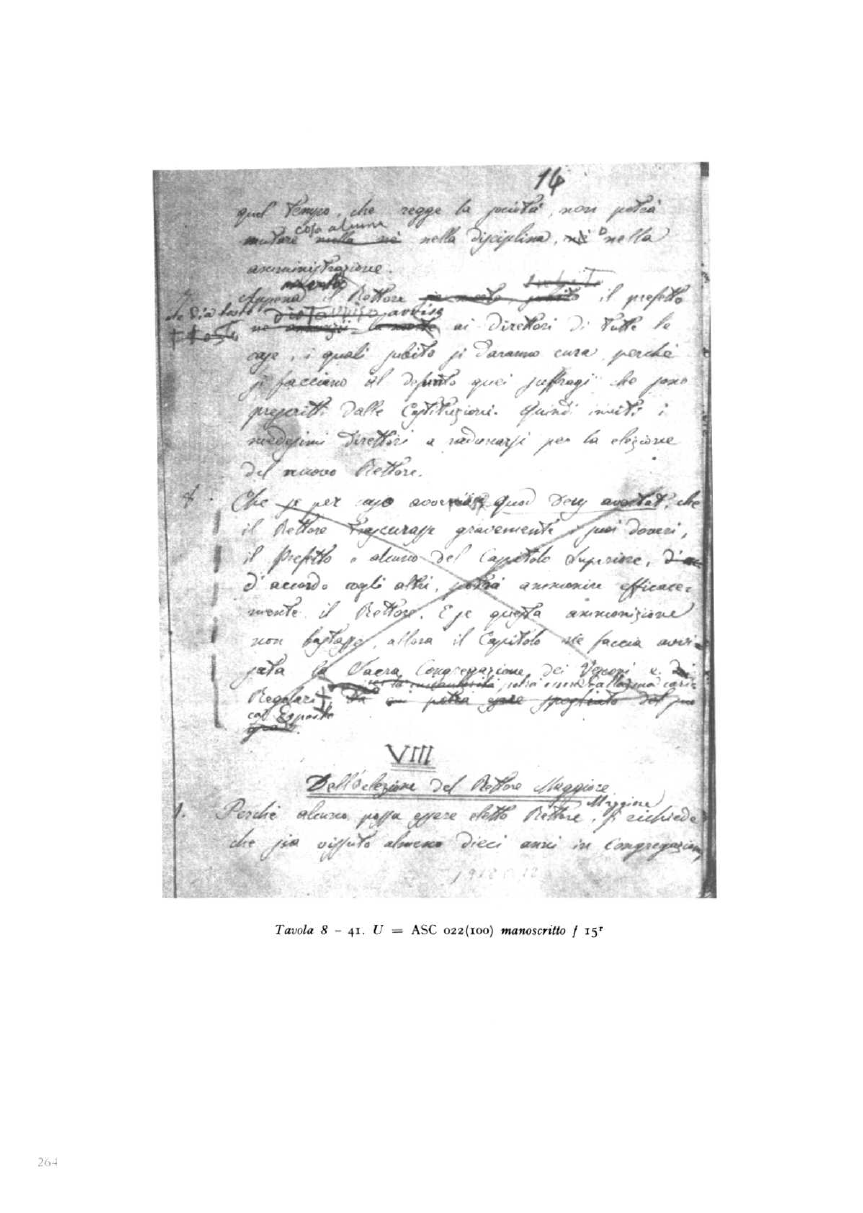 14
quel tempo, che regge la società, non potrà
cosa alcuna
mutare nulla nè nella disciplina, nè o nella
amministrazione.
morto
Appena il Rettore, il prefetto
ne dia tosto avviso
ne la morte ai Direttori di tutte le
case, i quali subito si daranno cura, perchè
si facciano al defunto quei suffragi che sono
prescritti dalle Costituzioni. Quindi inviti i
medesimi Direttori a radunarsi per la elezione
del nuovo Rettore.
Che se per caso avvenisse, quod Deus avertat, che
il Rettore trascurasse gravemente i suoi doveri,
il Prefetto o alcuno del Capitolo Superiore,
d'accordo cogli altri, potrà ammonire efficace-
mente il Rettore. E se questa ammonizione
non bastasse, allora il Capitolo ne faccia avvi-
sata la Sacra Congregazione dei Vescovi e
Regolari, potrà essere
VIII
Dell'elezione del Rettore Maggiore
Maggiore
1. Perchè alcuno possa essere eletto Rettore, si richiede
che sia vissuto almeno dieci anni in Congregazion
Tavola 8 – 41. U = ASC 022(100) manoscritto f 15r
264